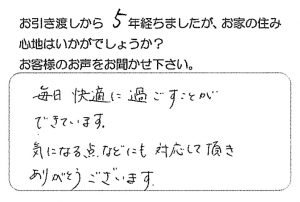 お引き渡しから 5 年経ちましたが、お家の住み
心地はいかがでしょうか？
お客様のお声をお聞かせ下さい。
毎日 快適に 過ごすことが
できています。
気になる点などにも 対応して頂き
ありがとうございます。